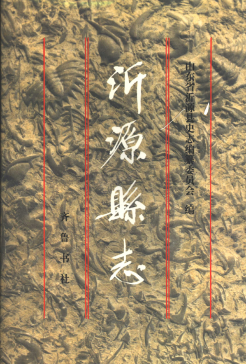 山东省沂源县史志编纂委员会 编
沂源縣志
齐鲁书社